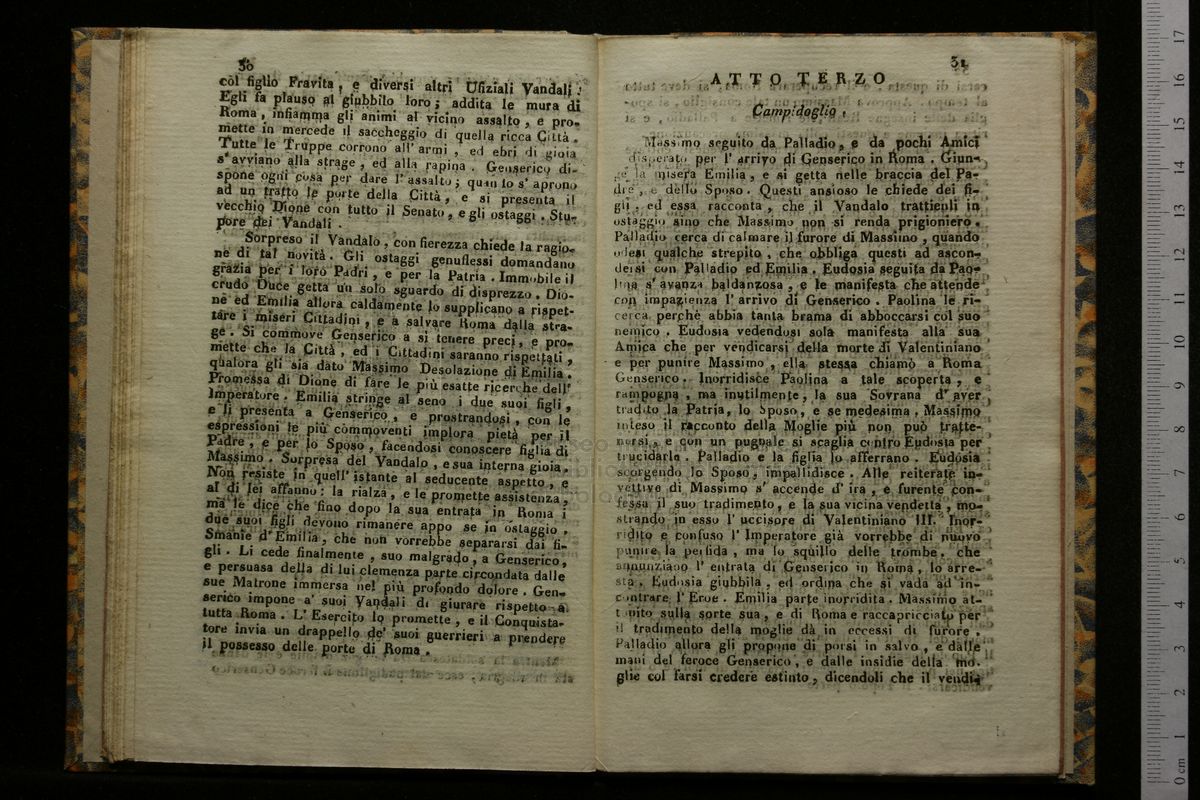 30
còl figlio Fravita, e diversi altri Ufiziali Vandali.
Egli fa plauso al giubbilo loro; addita le mura di
Roma, infiamma gli animi al vicino assalto, e pro-
mette in mercede il saccheggio di quella ricca Città.
Tutte le Truppe corrono all'armi, ed ebri di gioia
s'avviano alla strage, ed alla rapina. Genserico di-
spone ogni cosa per dare l'assalto; quando s'aprono
ad un tratto le porte della Città, e si presenta il
vecchio Dione con tutto il Senato, e gli ostaggi. Stu-
pore dei Vandali.
Sorpreso il Vandalo, con fierezza chiede la ragio-
ne di tal novità. Gli ostaggi genuflessi domandano
grazia per i loro Padri, e per la Patria. Immobile il
crudo Duce getta un solo sguardo di disprezzo. Dio-
ne ed Emilia allora caldamente lo supplicano a rispet-
tare i miseri Cittadini, e a salvare Roma dalla stra-
ge. Si commove Genserico a sì tenere preci, e pro-
mette che la Città, ed i Cittadini saranno rispettati,
qualora gli sia dato Massimo Desolazione di Emilia.
Promessa di Dione di fare le più esatte ricerche dell'
Imperatore. Emilia stringe al seno i due suoi figli,
e li presenta a Genserico, e prostrandosi, con le
espressioni le più commoventi implora pietà per il
Padre, e per lo Sposo, facendosi conoscere figlia di
Massimo. Sorpresa del Vandalo, e sua interna gioia.
Non resiste in quell'istante al seducente aspetto, e
al di lei affanno: la rialza, e le promette assistenza,
ma le dice che fino dopo la sua entrata in Roma i
due suoi figli devono rimanere appo se in ostaggio.
Smanie d'Emilia, che non vorrebbe separarsi dai fi-
gli. Li cede finalmente, suo malgrado, a Genserico,
e persuasa della di lui clemenza parte circondata dalle
sue Matrone immersa nel più profondo dolore. Gen-
serico impone a' suoi Vandali di giurare rispetto a
tutta Roma. L'Esercito lo promette, e il Conquista-
tore invia un drappello de' suoi guerrieri a prendere
il possesso delle porte di Roma.
31
ATTO TERZO
Campidoglio.
Massimo seguito da Palladio, e da pochi Amici
disperato per l'arrivo di Genserico in Roma. Giun-
ge la misera Emilia, e si getta nelle braccia del Pa-
dre, e dello Sposo. Questi ansioso le chiede dei fi-
gli, ed essa racconta, che il Vandalo trattienli in
ostaggio sino che Massimo non si renda prigioniero.
Palladio cerca di calmare il furore di Massimo, quando
odesi qualche strepito, che obbliga questi ad ascon-
dersi con Palladio ed Emilia. Eudosia seguita da Pao-
lina s'avanza baldanzosa, e le manifesta che attende
con impazienza l'arrivo di Genserico. Paolina le ri-
cerca perchè abbia tanta brama di abboccarsi col suo
nemico. Eudosia vedendosi sola manifesta alla sua
Amica che per vendicarsi della morte di Valentiniano
e per punire Massimo, ella stessa chiamò a Roma
Genserico. Inorridisce Paolina a tale scoperta, e
rampogna, ma inutilmente, la sua Sovrana d'aver
tradito la Patria, lo Sposo, e se medesima. Massimo
inteso il racconto della Moglie più non può tratte-
nersi, e con un pugnale si scaglia contro Eudosia per
trucidarla. Palladio e la figlia lo afferrano. Eudosia
scorgendo lo Sposo, impallidisce. Alle reiterate in-
vettive di Massimo s'accende d'ira, e furente con-
fessa il suo tradimento, e la sua vicina vendetta, mo-
strando in esso l'uccisore di Valentiniano III. Inor-
ridito e confuso l'Imperatore già vorrebbe di nuovo
punire la perfida, ma lo squillo delle trombe, che
annunziano l'entrata di Genserico in Roma, lo arre-
sta. Eudosia giubbila, ed ordina che si vada ad in-
contrare l'Eroe. Emilia parte inorridita. Massimo at-
tonito sulla sorte sua, e di Roma e raccapricciato per
il tradimento della moglie dà in eccessi di furore.
Palladio allora gli propone di porsi in salvo, e dalle
mani del feroce Genserico, e dalle insidie della mo-
glie col farsi credere estinto, dicendoli che il vendi-